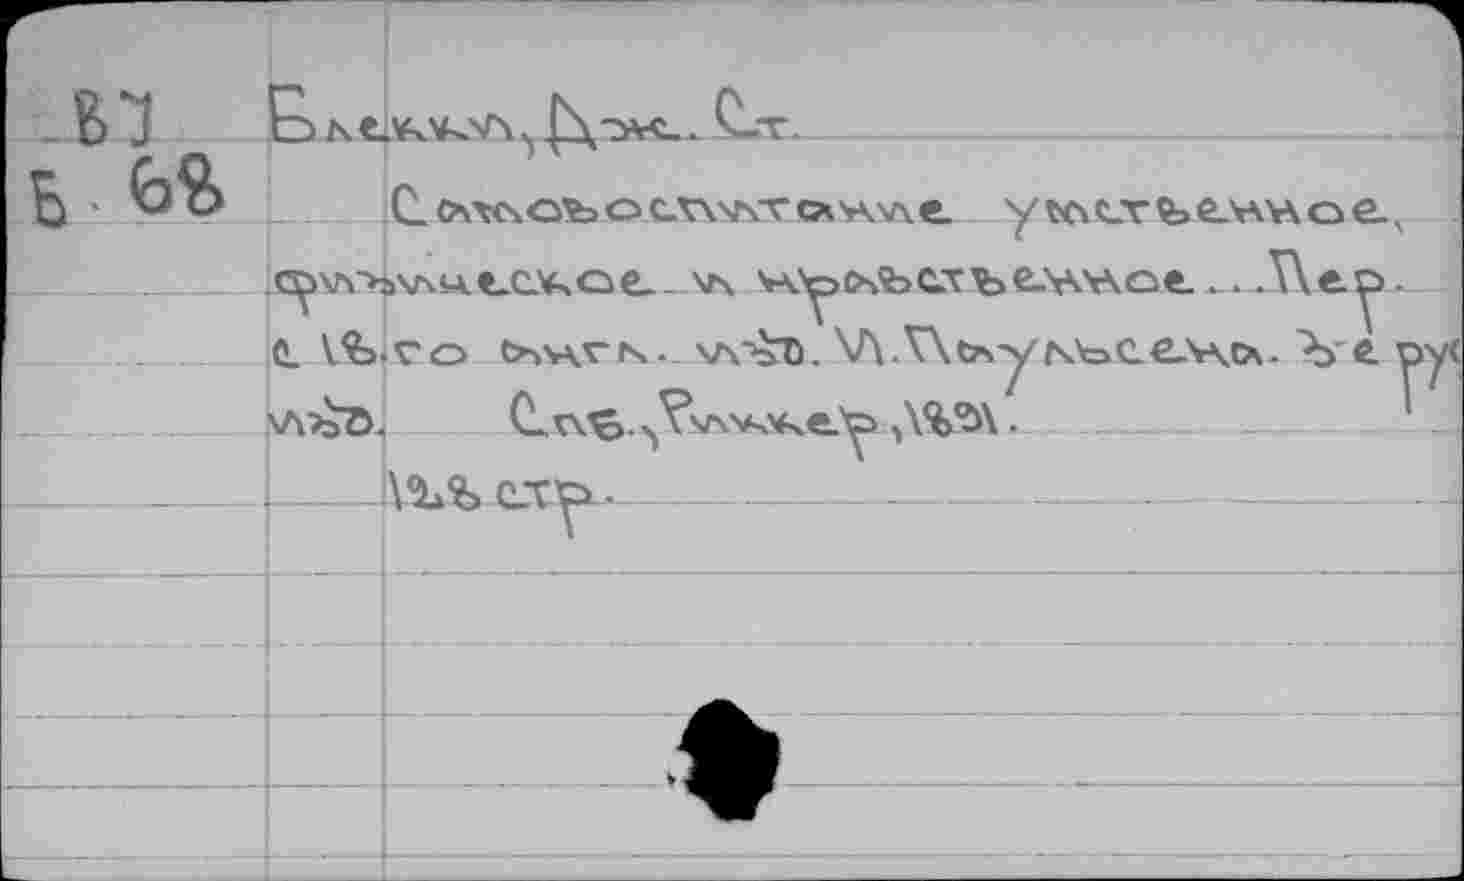 ВЛ Блекки, Дж. Ст.
Б 68 Самовоспитание умственное,
физическое и нравственное....Пер.
с 18-го англ. изд. И.Паульсена. 3-е рус
изд. Спб., Риккер, 1891.
128 стр.